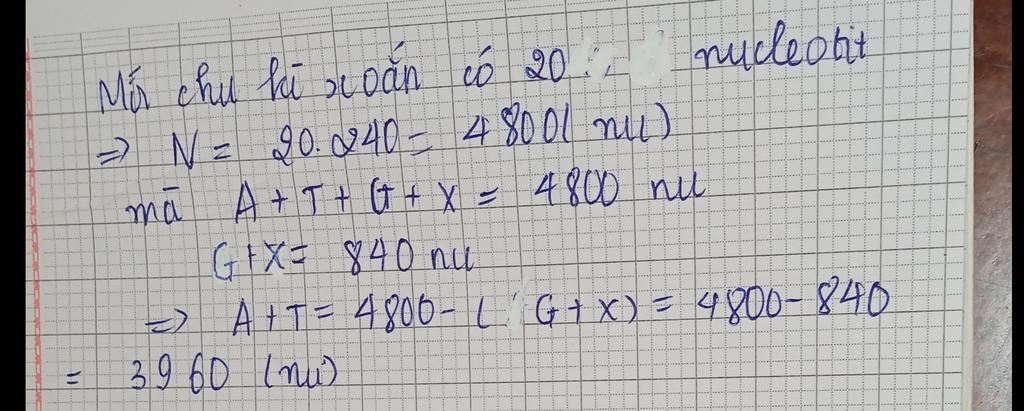 Mỗi chu kì xoắn có 20 nucleotit
=> N = 20.240 = 4800( nu)
mà A + T + G + X = 4800 nu
G+X= 840 nu
=> A+T= 4800- ( G+X) = 4800-840
= 3960 (nu)